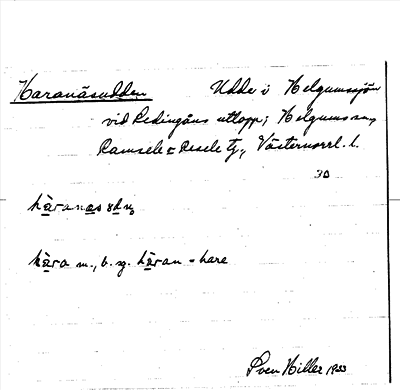 Haranäsudden Udde i Helgumssjön
vid Ledingåns utlopp; Helgums sn,
Ramsele & Resele tg., Västernorrl. l.
30
håranas
håra m., b. sg. håran = hare
Sven Hiller 1933